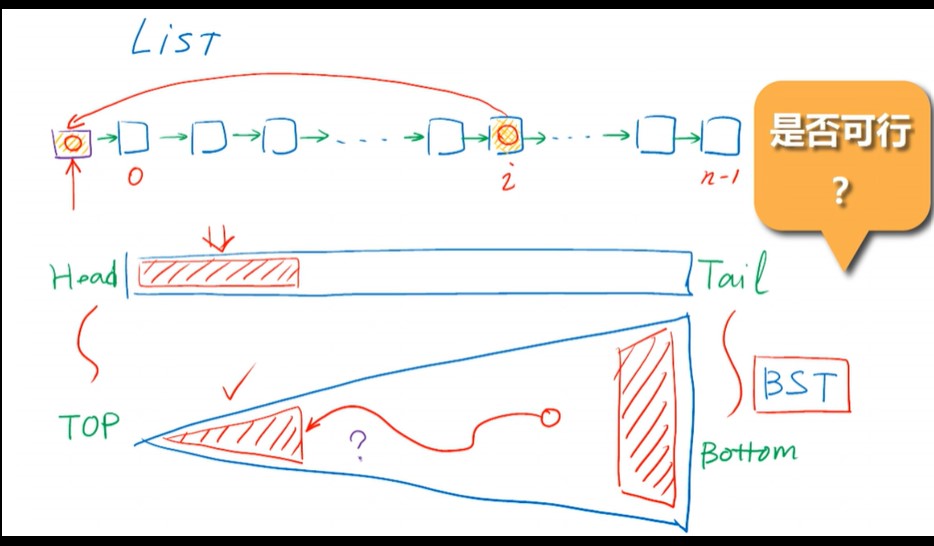 LIST
0
i
n-1
是否可行
?
Head
Tail
TOP
?
BST
Bottom